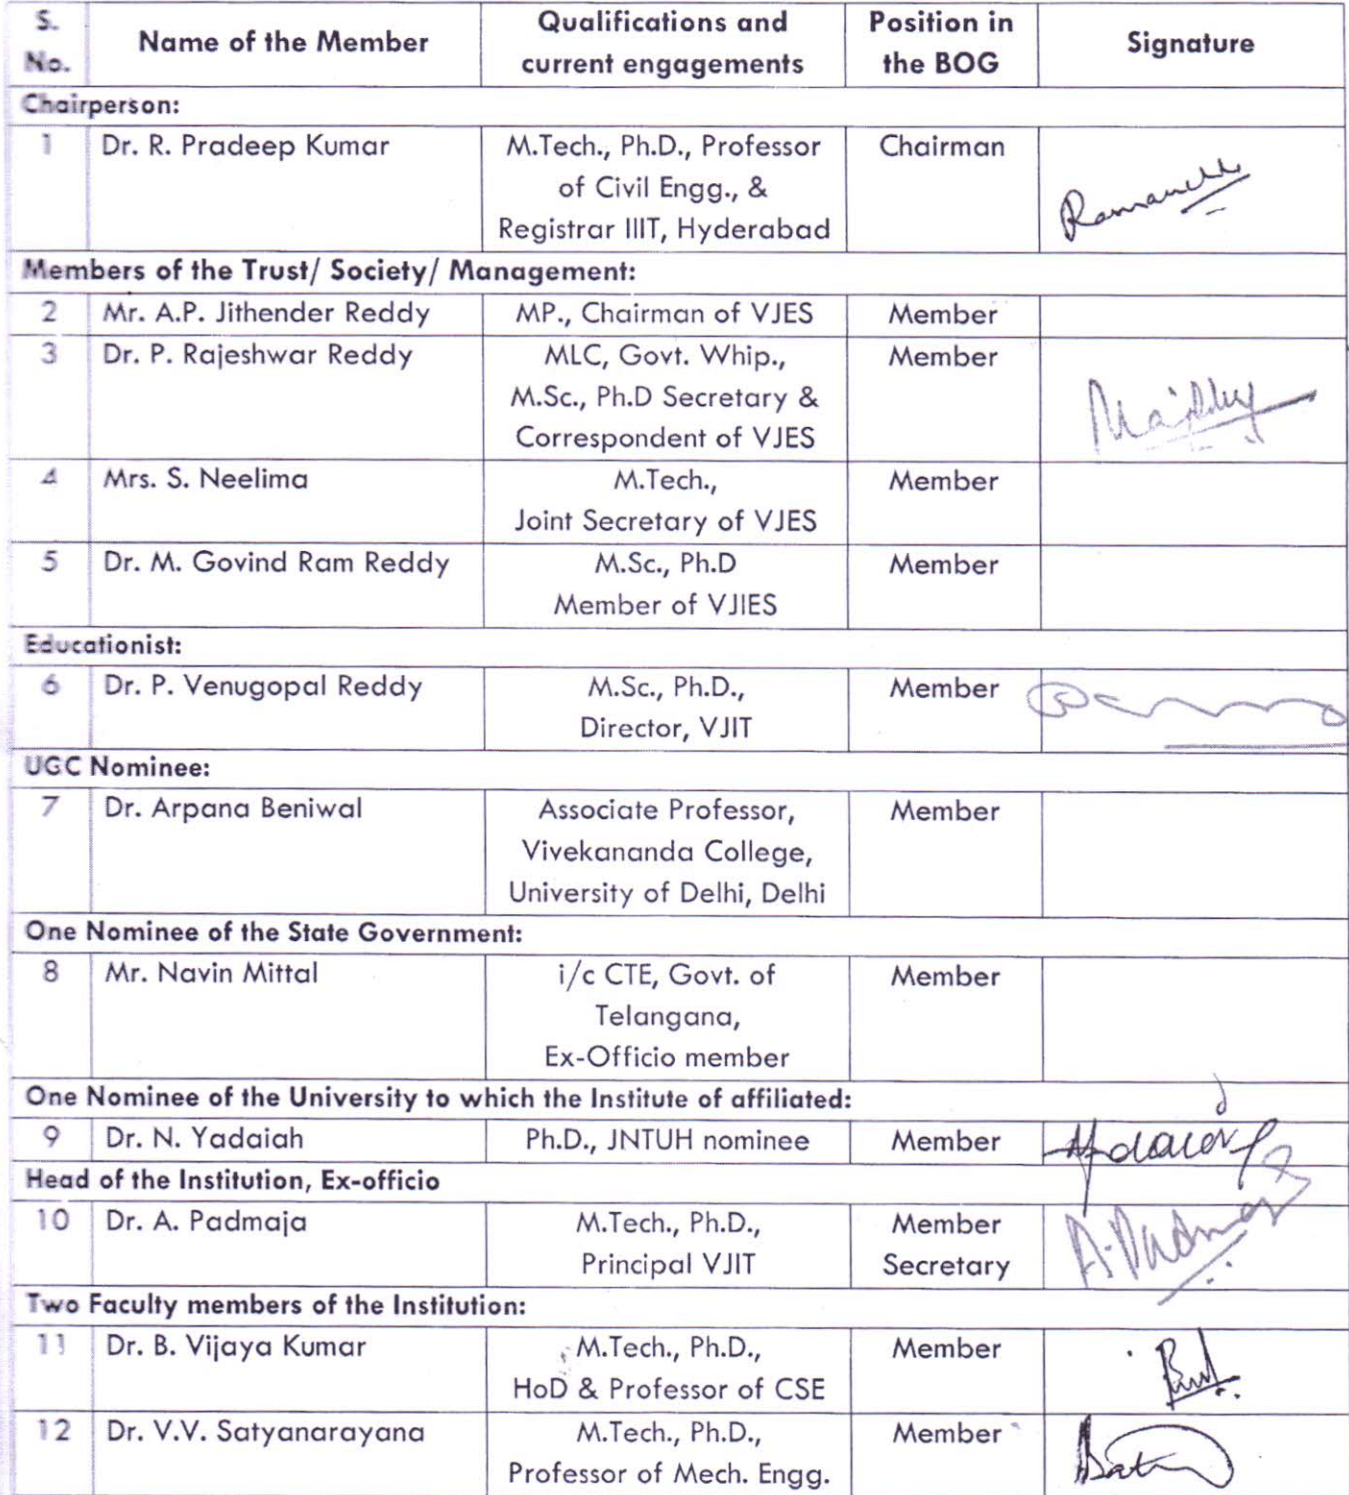 S. No. Name of the Member Qualifications and current engagements Position in the BOG Signature
Chairperson:
1 Dr. R. Pradeep Kumar M.Tech., Ph.D., Professor Chairman
of Civil Engg., &
Registrar IIIT, Hyderabad
Members of the Trust/ Society/ Management:
2 Mr. A.P. Jithender Reddy MP., Chairman of VJES Member
3 Dr. P. Rajeshwar Reddy MLC, Govt. Whip., Member
M.Sc., Ph.D Secretary &
Correspondent of VJES
4 Mrs. S. Neelima M.Tech., Member
Joint Secretary of VJES
5 Dr. M. Govind Ram Reddy M.Sc., Ph.D Member
Member of VJIES
Educationist:
6 Dr. P. Venugopal Reddy M.Sc., Ph.D., Member
Director, VJIT
UGC Nominee:
7 Dr. Arpana Beniwal Associate Professor, Member
Vivekananda College,
University of Delhi, Delhi
One Nominee of the State Government:
8 Mr. Navin Mittal i/c CTE, Govt. of Member
Telangana,
Ex-Officio member
One Nominee of the University to which the Institute of affiliated:
9 Dr. N. Yadaiah Ph.D., JNTUH nominee Member
Head of the Institution, Ex-officio
10 Dr. A. Padmaja M.Tech., Ph.D., Member A. Padmaja
Principal VJIT Secretary
Two Faculty members of the Institution:
11 Dr. B. Vijaya Kumar M.Tech., Ph.D., Member
HoD & Professor of CSE
12 Dr. V.V. Satyanarayana M.Tech., Ph.D., Member
Professor of Mech. Engg.